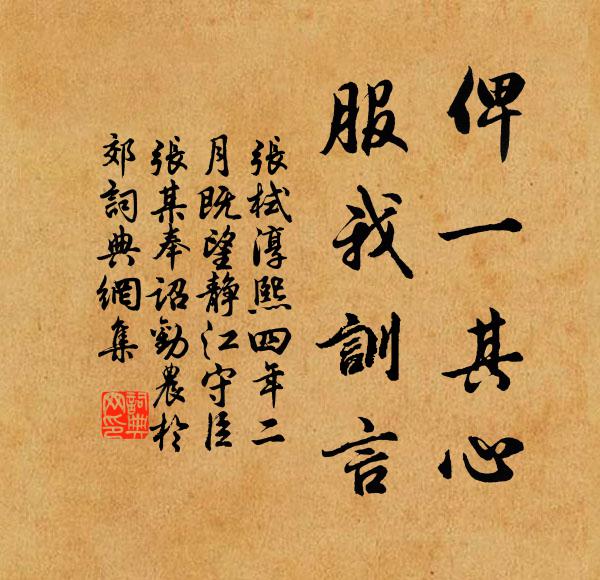 俾一其心
服我訓言
張栻淳熙四年二
月既望靜江守臣
張某奉詔勸農於
郊詞典網集
詞典
网印